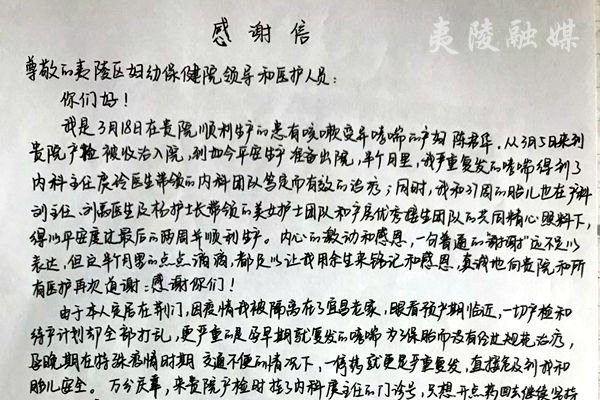 感谢信
夷陵融媒
尊敬的夷陵区妇幼保健院领导和医护人员：
你们好！
我是3月18日在贵院顺利生产的患有咳嗽变异哮喘的产妇陈君华。从3月5日来到
贵院产检被收治入院，到如今平安生产准备出院，半个月里，我严重复发的哮喘得到了
内科主任庹玲医生带领的内科团队笃定而有效的治疗；同时，我和37周的胎儿也在产科
刘主任、刘医生及杨护士长带领的美女护士团队和产房优秀接生团队的共同精心照料下，
得以平安度过最后的两周并顺利生产。内心的激动和感恩，一句普通的“谢谢”远不足以
表达，但这半个月里的点点滴滴，都足以让我用余生来铭记和感恩，真诚地向贵院和所
有医护再次道谢：感谢你们！
由于本人定居在荆门，因疫情我被隔离在了宜昌老家，眼看预产期临近，一切产检和
待产计划却全部打乱，更严重的是孕早期就复发的哮喘为了保胎而没有经过规范治疗，
孕晚期在特殊疫情时期交通不便的情况下，一停药就更是严重复发，直接危及到我和
胎儿安全。万分庆幸，来贵院产检时挂了内科庹主任的门诊号，只想开点药回去继续坚持